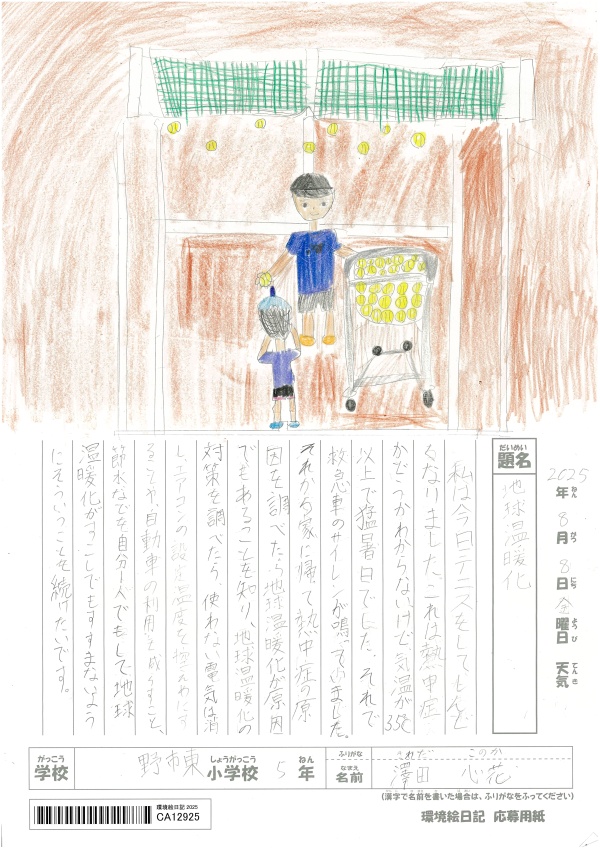 2025年ねん8月がつ8日にち金曜日ようび 天気てんき
題名だいめい 地球温暖化
私は今日テニスをしてしんど
くなりました。これは熱中症
かどうかわからないけど気温が35℃
以上で猛暑日でした。それで
救急車のサイレンが鳴っていました。
それから家に帰って熱中症の原
因を調べたら地球温暖化が原因
でもあることを知り、地球温暖化の
対策を調べたら、使わない電気は消
し、エアコンの設定温度を控えめにす
ることや、自動車の利用を減らすこと、
節水などを自分1人でもして地球
温暖化がすこしでもすすまないよう
にそういうことを続けたいです。
学校がっこう 野市東小学校しょうがっこう 5年ねん
ふりがな さわだ このか
名前なまえ 澤田 心花
(漢字で名前を書いた場合は、ふりがなをふってください)
環境絵日記 2025
CA12925
環境絵日記 応募用紙